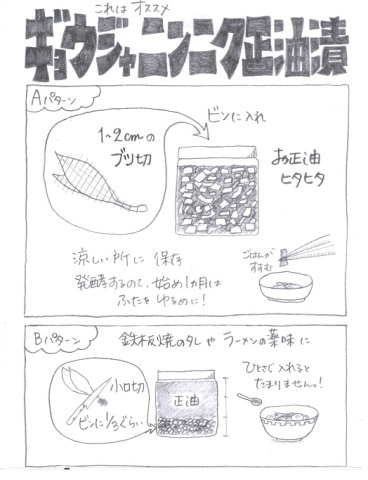 これは オススメ
ギョウジャニンニク正油漬
Aパターン
1~2cmの
ブツ切
ビンに入れ
お正油
ヒタヒタ
涼しい所に 保存
発酵するので、始め1カ月は
ふたをゆるめに!
ごはんが
すすむ
Bパターン
鉄板焼のタレや ラーメンの薬味に
小口切
ビンに1/3ぐらい
正油
ひとさじ入れると
たまりませんっ!